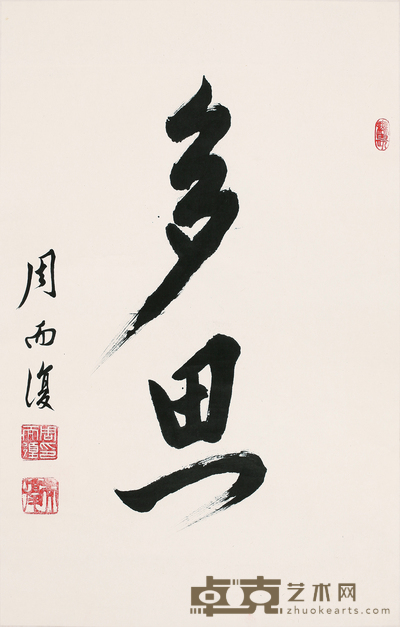 多思
周而復
卓克艺术网
zhuokearts.com